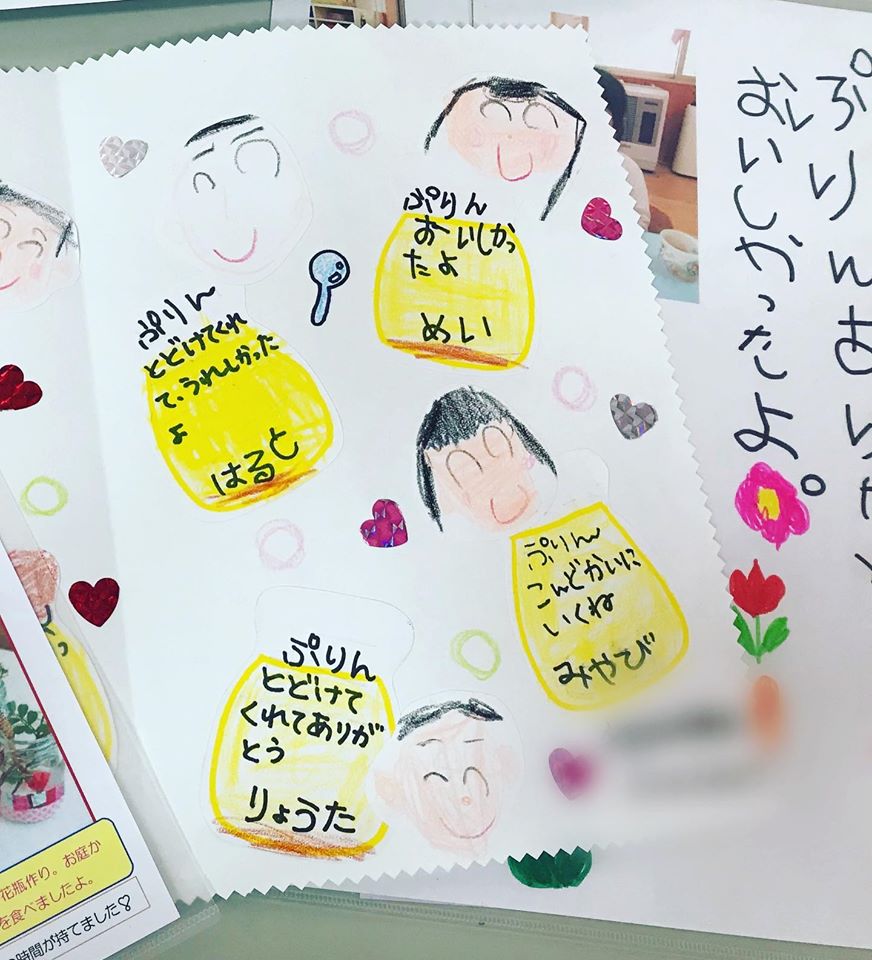 ぷりん
おいしかっ
たよ
めい
ぷりん
とどけてくれ
て、うれしかった
よ
はると
ぷりん
こんどかいに
いくね
みやび
ぷりん
とどけて
くれてありが
とう
りょうた
ぷりんお
おいしかったよ。
花瓶作り。お庭か
を食べましたよ。
時間が持てました